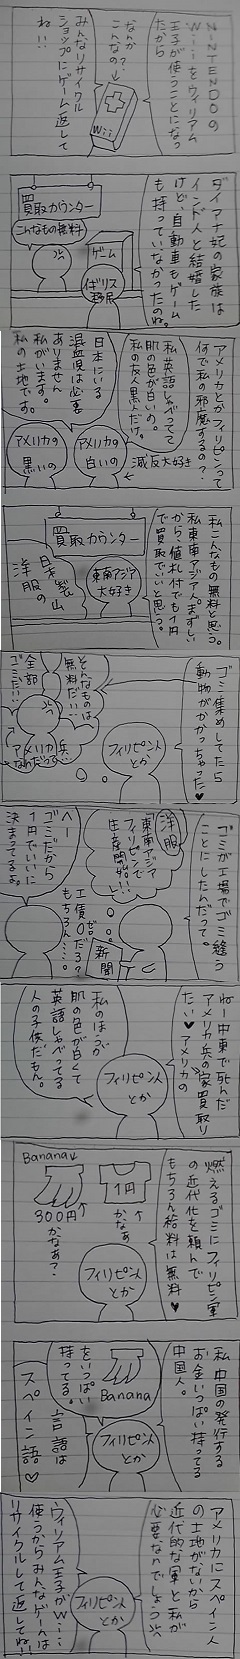 NINTENDOの
Wiiをウィリアム
王子が使うことになっ
たから
なんか?
こんなの→
Wii
みんなリサイクル
ショップにゲーム返して
ね!!
ダイアナ妃の家族は
インド人と結婚した
けど、自動車もゲーム
も持っていなかったのね。
買取カウンター
こんなもの無料
ゲーム
イギリス
移民
アメリカとかフィリピンって
何で私の邪魔するの?
私英語しゃべって
肌の色が白いの。
私の友人黒人だけ。
減反大好き
日本にいる
混血児は必要
ありません
私がいます。
私の土地です。
アメリカの
白いの
アメリカの
黒いの
私こんなもの無料と思う。
私東南アジア人。まずしい
から、値札付でも1円
で買取でいいと思う。
買取カウンター
東南アジア
大好き
日本製
洋服の
山
ゴミ集めしてたら
動物がかかっちゃった♥
そんなものは
無料だい!!
全部
ゴミだい!!
アメリカ兵
なんだって
フィリピン人
とか
ゴミが工場でゴミ縫う
ことにしたんだって。
洋服
東南アジア
フィリピンで
生産開始!!
新聞
工賃0だろ?
ゼロ
もちろん…。
へー
ゴミだから
1円でいいに
決まってるよ。
ねー中東で死んだ
アメリカ兵の家買取り
たい♥アメリカの
私のほうが
肌の色が白くて
英語しゃべってる
人の子供だもん。
フィリピン人
とか
燃えるゴミにフィリピン軍
の近代化を頼んで
もちろん給料は無料♥
Banana↓
1円
↑
かなあ
300円↑
かなあ?
フィリピン人
とか
私中国の発行する
お金いっぱい持ってる
中国人。
Banana
をいっぱい
持ってる。
フィリピン人
とか
言語は
スペイン語♡
アメリカにスペイン人
の土地がないから
近代的な軍と私が
必要なんでしょう
フィリピン人
とか
ウィリアム王子がWii
使うからみんなゲームは
リサイクルして返してね!!